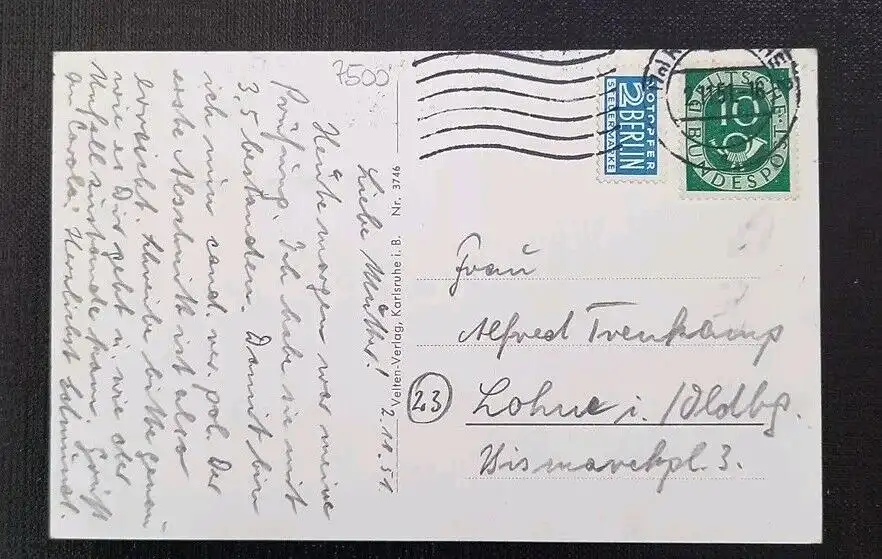 7500
NOTOPFER
2 BERLIN
STEUERMARKE
DEUTSCHE
10
BUNDESPOST
Velten-Verlag, Karlsruhe i. B. Nr. 3746
2.10.51
Liebe Mutter!
Heute morgen war meine
Prüfung. Ich habe sie mit
3,5 bestanden. Damit bin
ich nun cand. rer. pol. Der
erste Abschnitt ist also
erreicht. Schreibe bitte genau
wie es Dir geht u. wie der
Unfall zustande kam. Grüße
an Carola. Herzlichst
Frau
Alfred Trenkamp
(23) Lohne i./Oldbg.
Bismarckpl. 3.